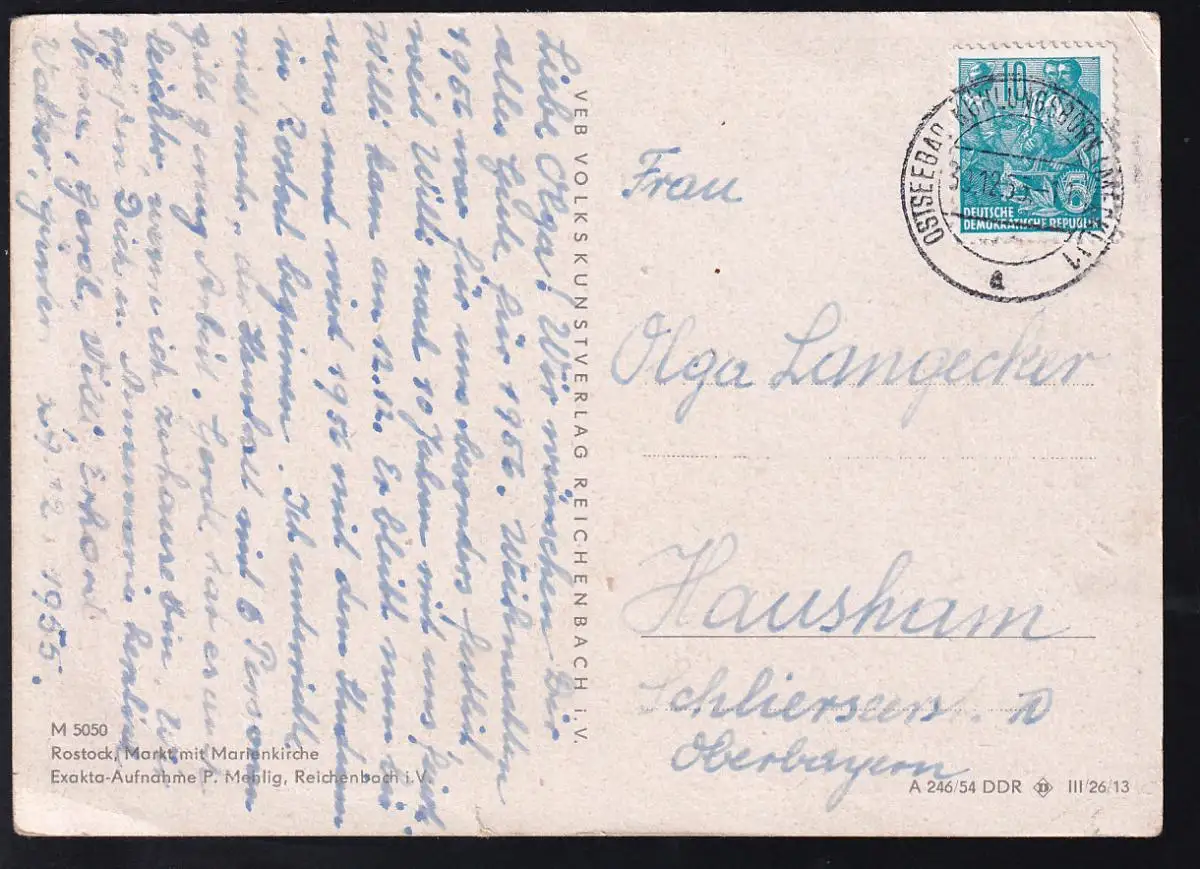 Liebe Olga! Wir wünschen Dir
alles Gute für 1956. Weihnachten
1956 war für uns besonders festlich
weil Willi nach 10 Jahren mit uns feiert
Willi kam am 12.12. Er bleibt nun bei
uns und wird 1956 mit dem Studium
in Rostock beginnen. Ich unterrichte
nicht mehr, der Haushalt mit 6 Personen
gibt genug Arbeit. Gerdi hat es auch
leichter, wenn ich zuhause bin. Wir
grüßen Dich u. Annemarie herzlich
Gerdi, Willi, Erhard
29.12.1955.
VEB VOLKSKUNSTVERLAG REICHENBACH i. V.
M 5050
Rostock, Markt mit Marienkirche
Exakta-Aufnahme P. Mehlig, Reichenbach i. V.
10
5
DEUTSCHE
DEMOKRATISCHE REPUBLIK
OSTSEEBAD KÜHLUNGSBORN
a
Frau
Olga Langecker
Hausham
Oberbayern
A 246/54 DDR III/26/13